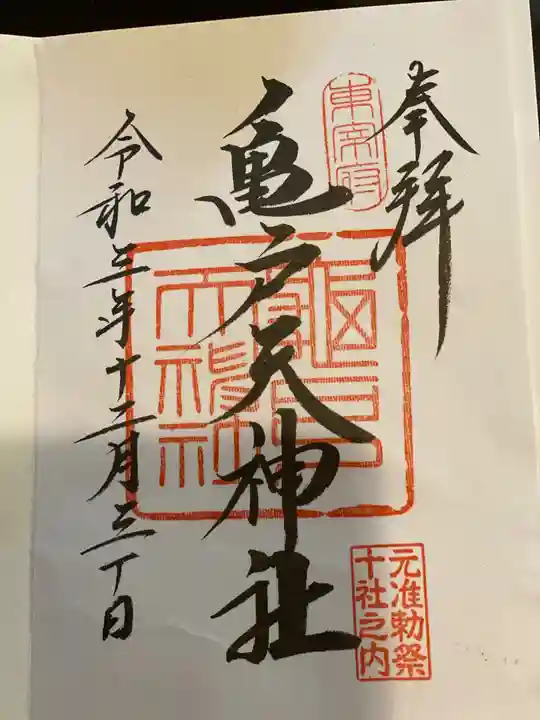 奉拝
東宰府
亀戸天神社
元准勅祭
十社之内
令和三年十二月三十日